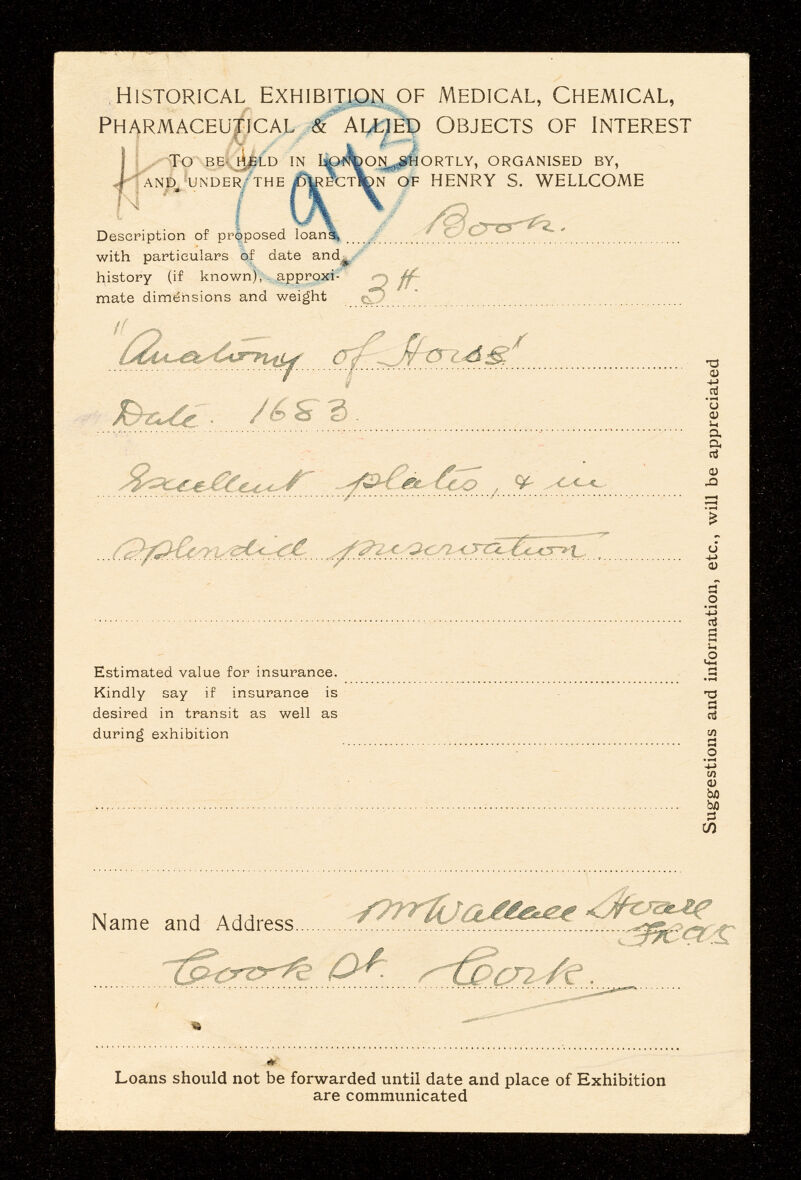 HISTORICAL EXHIBITION OF MEDICAL, CHEMICAL,
PHARMACEUTICAL & ALLIED OBJECTS OF INTEREST
TO BE HELD IN LONDON SHORTLY, ORGANISED BY,
AND UNDER THE DIRECTION OF HENRY S. WELLCOME
973
Description of proposed loans, Book.
with particulars of date and
history (if known), approxi-
mate dimensions and weight 3 ff.
"Anatomy of Horse"
Date. 1683.
Excellent plates, & in
splendid preservation.
Estimated value for insurance.
Kindly say if insurance is
desired in transit as well as
during exhibition
Name and Address Mr Wallace Hoare
Cook St. Cork.
Loans should not be forwarded until date and place of Exhibition
are communicated
Suggestions and information, etc., will be appreciated